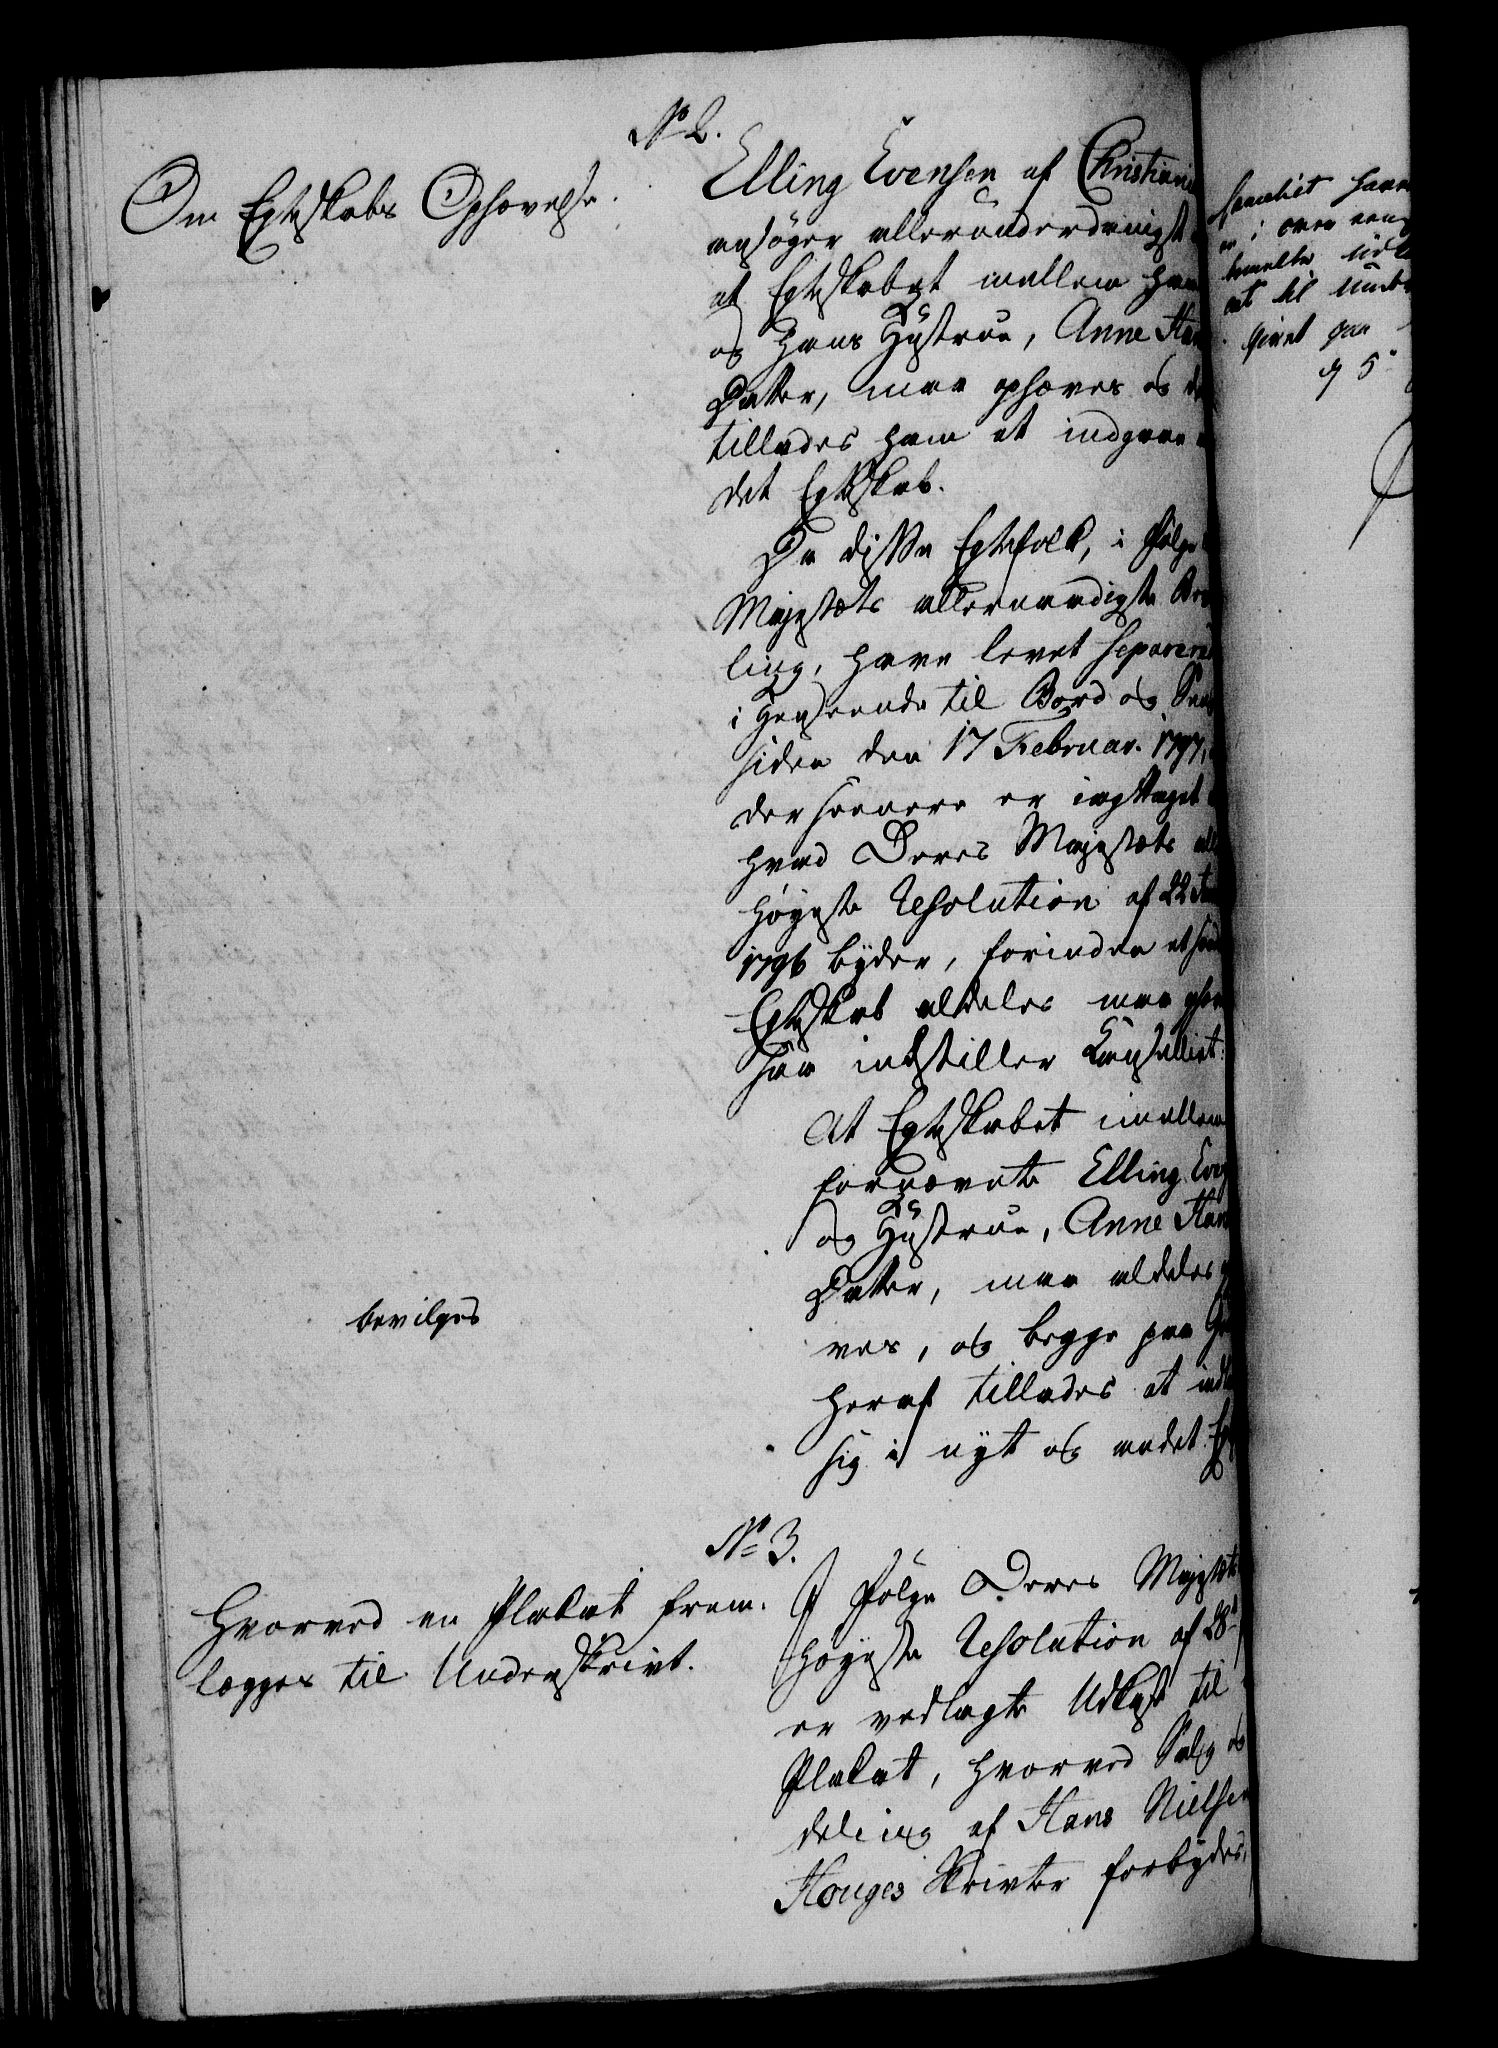 No 2.
Om Egteskabs Ophævelse.
Elling Evensen af Christiania
ansøger allerunderdanigst
at Egteskabet imellem ham
og hans Hustrue, Anne Hans
Datter, maa ophæves og det
tillades ham at indgaae
det Egteskab.
Da disse Egtefolk, i Følge
Majestæts allernaadigste Bevil
ling, have levet separerede
i Henseende til Bord og Seng
siden den 17 Februar. 1797,
der foruden er iagttaget
hvad Deres Majestæts aller
høyeste Resolution af 22
1796 byder, forinden et saadant
Egteskab aldeles maa ophæ
saa indstiller Cancelliet:
At Egteskabet imellem
fornævnte Elling Even
og Hustrue, Anne Hans
Datter, maa aldeles
ves, og begge paa
heraf tillades at indlade
sig i nyt og andet Egte
bevilges
No 3.
Hvorved en Plakat frem-
lægges til Underskrivt.
I Følge Deres Majestæts
høyeste Resolution af 28
er vedlagte Udkast til
Plakat, hvorved Salg og
deling af Hans Nielsen
Houges Skrivter forbydes,
i overeens
bemeldte Udk
til Under
givet paa